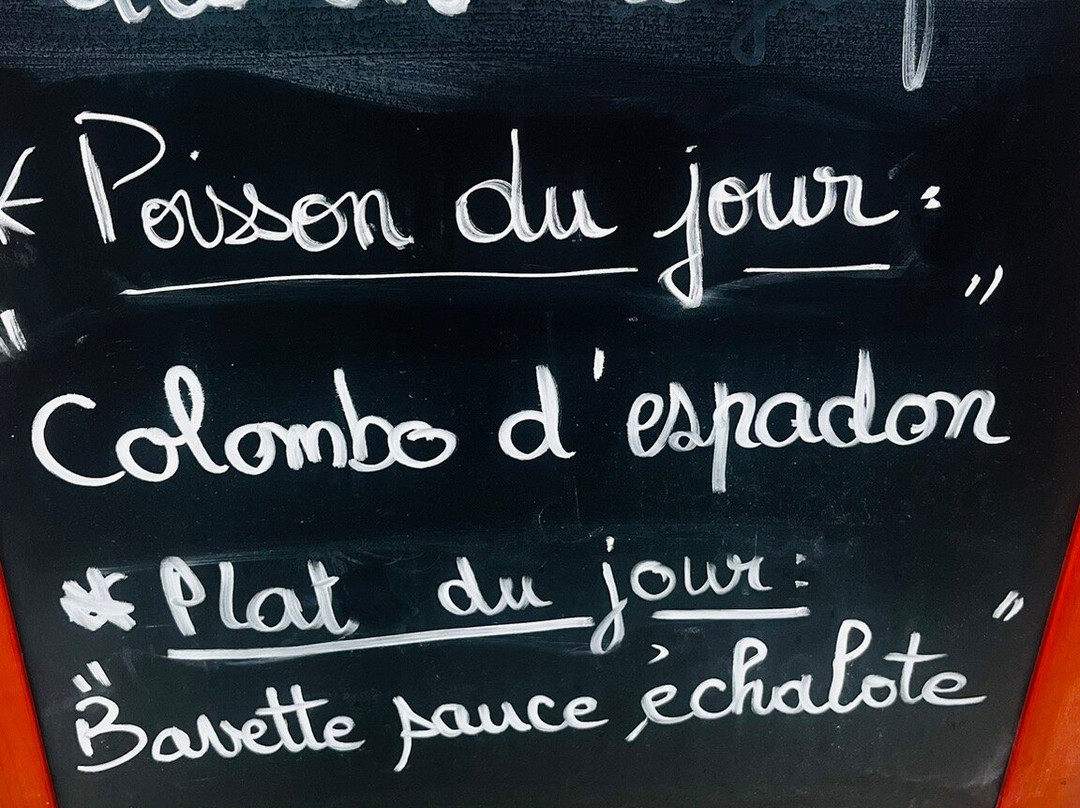 * Poisson du jour :
" Colombo d'espadon "
* Plat du jour :
" Bavette sauce échalote "